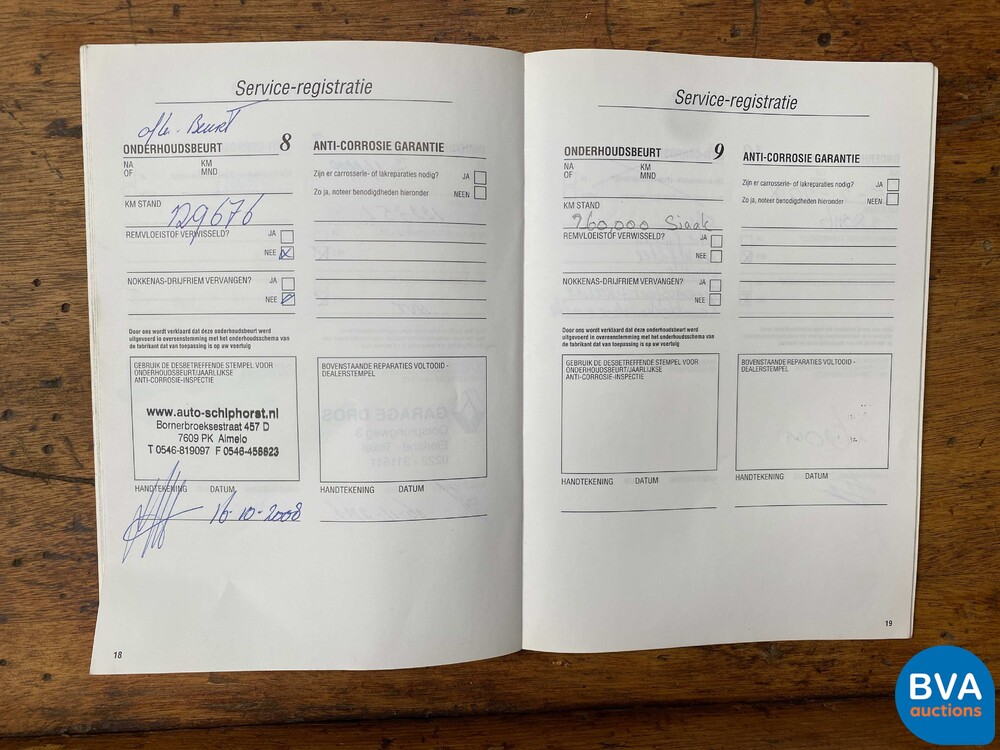 Service-registratie
Beurt
ONDERHOUDSBEURT 8
NA KM
OF MND
KM STAND
129676
REMVLOEISTOF VERWISSELD? JA
NEE x
NOKKENAS-DRIJFRIEM VERVANGEN? JA
NEE
Door ons wordt verklaard dat deze onderhoudsbeurt werd
uitgevoerd in overeenstemming met het onderhoudsschema van
de fabrikant dat van toepassing is op uw voertuig
GEBRUIK DE DESBETREFFENDE STEMPEL VOOR
ONDERHOUDSBEURT/JAARLIJKSE
ANTI-CORROSIE-INSPECTIE
www.auto-schiphorst.nl
Bornerbroeksestraat 457 D
7609 PK Almelo
T 0546-819097 F 0546-456823
HANDTEKENING DATUM
16-10-2008
18
ANTI-CORROSIE GARANTIE
Zijn er carrosserie- of lakreparaties nodig? JA
Zo ja, noteer benodigdheden hieronder NEEN
BOVENSTAANDE REPARATIES VOLTOOID -
DEALERSTEMPEL
GARAGE DROS
HANDTEKENING DATUM
Service-registratie
ONDERHOUDSBEURT 9
NA KM
OF MND
KM STAND
960,000 Siaak
REMVLOEISTOF VERWISSELD? JA
NEE
NOKKENAS-DRIJFRIEM VERVANGEN? JA
NEE
Door ons wordt verklaard dat deze onderhoudsbeurt werd
uitgevoerd in overeenstemming met het onderhoudsschema van
de fabrikant dat van toepassing is op uw voertuig
GEBRUIK DE DESBETREFFENDE STEMPEL VOOR
ONDERHOUDSBEURT/JAARLIJKSE
ANTI-CORROSIE-INSPECTIE
HANDTEKENING DATUM
ANTI-CORROSIE GARANTIE
Zijn er carrosserie- of lakreparaties nodig? JA
Zo ja, noteer benodigdheden hieronder NEEN
BOVENSTAANDE REPARATIES VOLTOOID -
DEALERSTEMPEL
HANDTEKENING DATUM
19
BVA
auctions